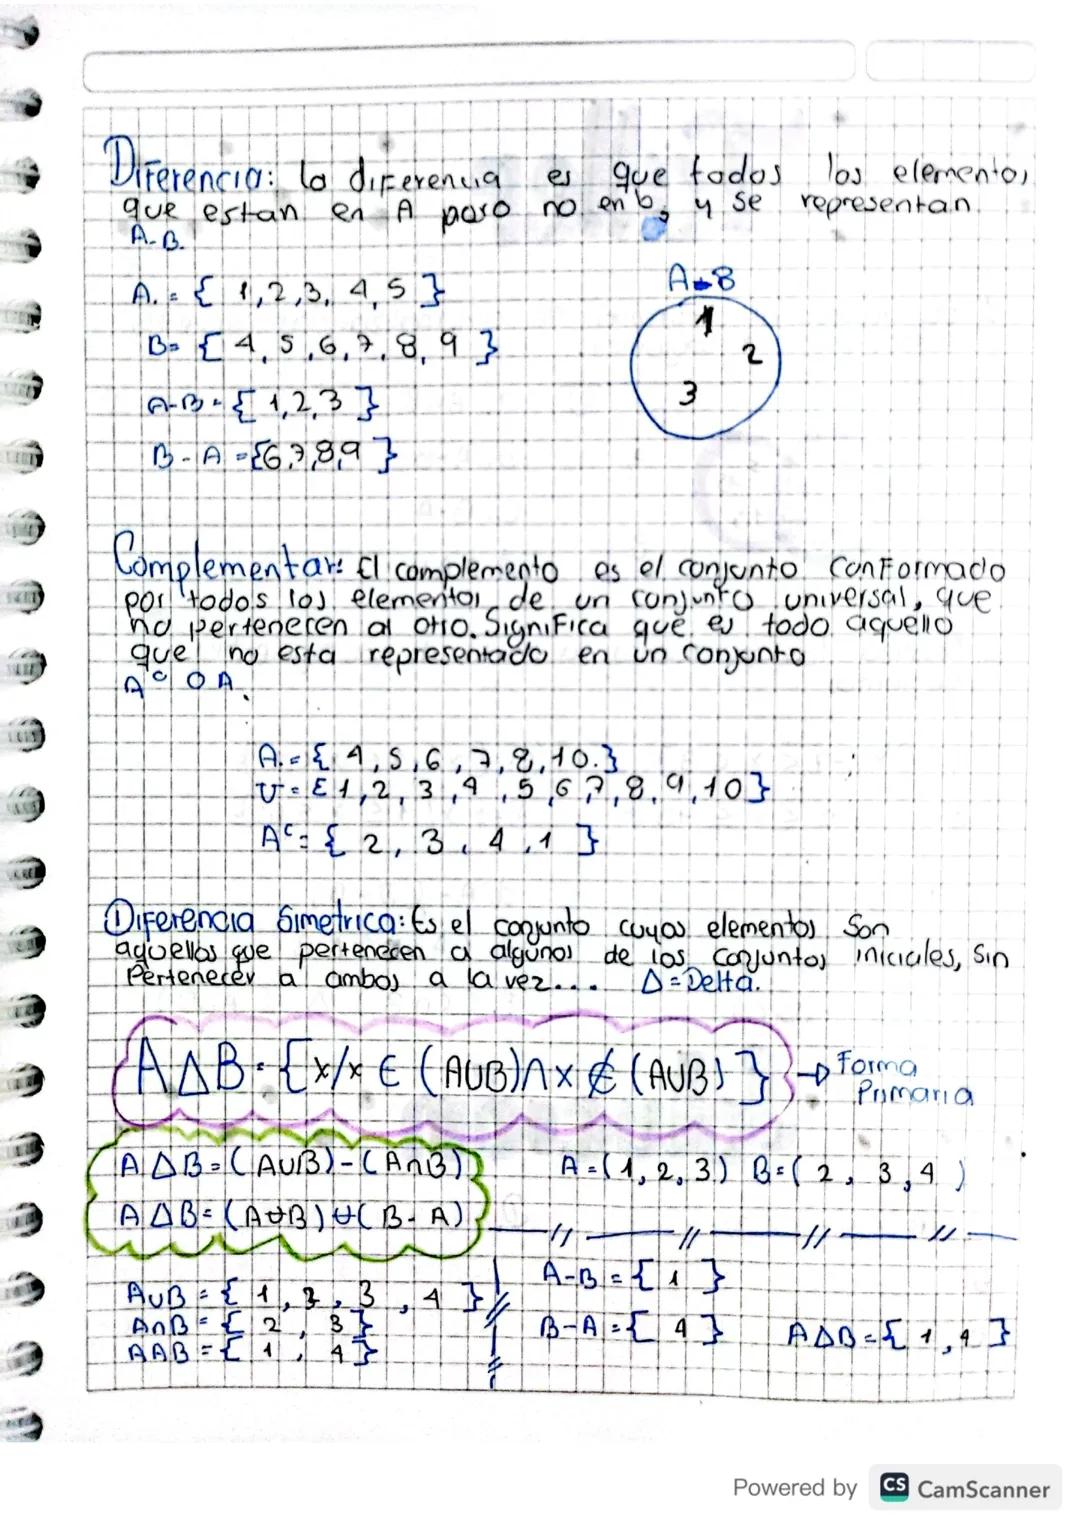 Diferencia: la diferencia es que todos los elementos
que estan en A paro no en b, y se representan
A-B.
A. = { 1,2,3, 4,5 }
A-B
1
2
3
B= { 4, 5, 6, 7, 8, 9 }
A-B = { 1,2,3 }
B - A = {6,7,8,9 }
Complementar: El complemento es el conjunto conformado
por todos los elementos de un conjunto universal, que
no pertenecen al otro. Significa que es todo aquello
que no esta representado en un conjunto
Aᶜ O A.
A. = { 4,5,6,7,8,10.}
U = { 1,2,3,4,5,6,7,8,9,10}
Aᶜ= { 2, 3, 4, 1 }
Diferencia Simetrica: Es el conjunto cuyos elementos Son
aquellos que pertenecen a algunos de los conjuntos iniciales, Sin
Pertenecer a ambos a la vez... Δ = Delta.
A Δ B = { x/x ∈ (A∪B) ∩ x ∉ (A∪B) } → Forma
Primaria
A Δ B = (A∪B) - (A∩B)
A Δ B = (A∪B) ∪ ( B - A)
A = (1, 2, 3) B = ( 2, 3, 4 )
A∪B = { 1, 2, 3, 4 }
A∩B = { 2, 3}
AΔB = { 1, 4}
A-B = { 1 }
B-A = { 4 }
A Δ B = { 1, 4 }
Powered by CS CamScanner